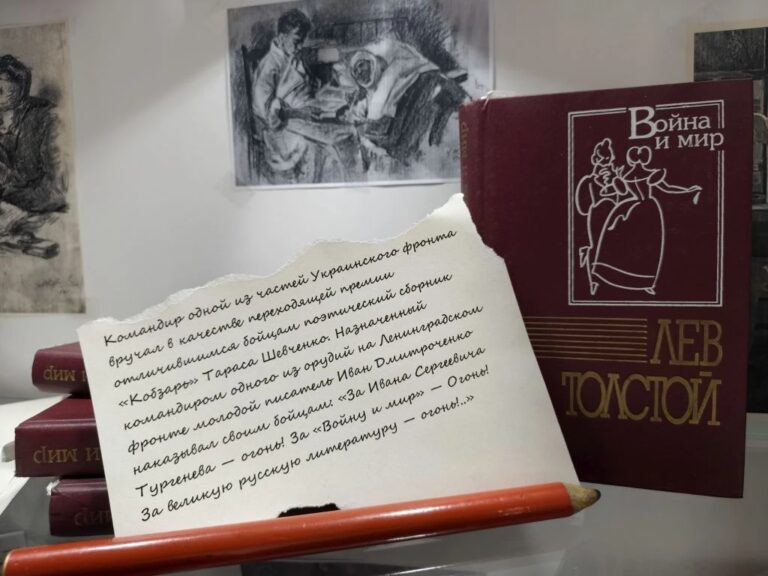 Война
и мир
ЛЕВ
ТОЛСТОЙ
Командир одной из частей Украинского фронта
вручал в качестве переходящей премии
отличившимся бойцам поэтический сборник
«Кобзарь» Тараса Шевченко. Назначенный
командиром одного из орудий на Ленинградском
фронте молодой писатель Иван Дмитроченко
наказывал своим бойцам: «За Ивана Сергеевича
Тургенева — огонь! За «Войну и мир» — Огонь!
За великую русскую литературу — огонь!..»
и мир
и мир
и мир